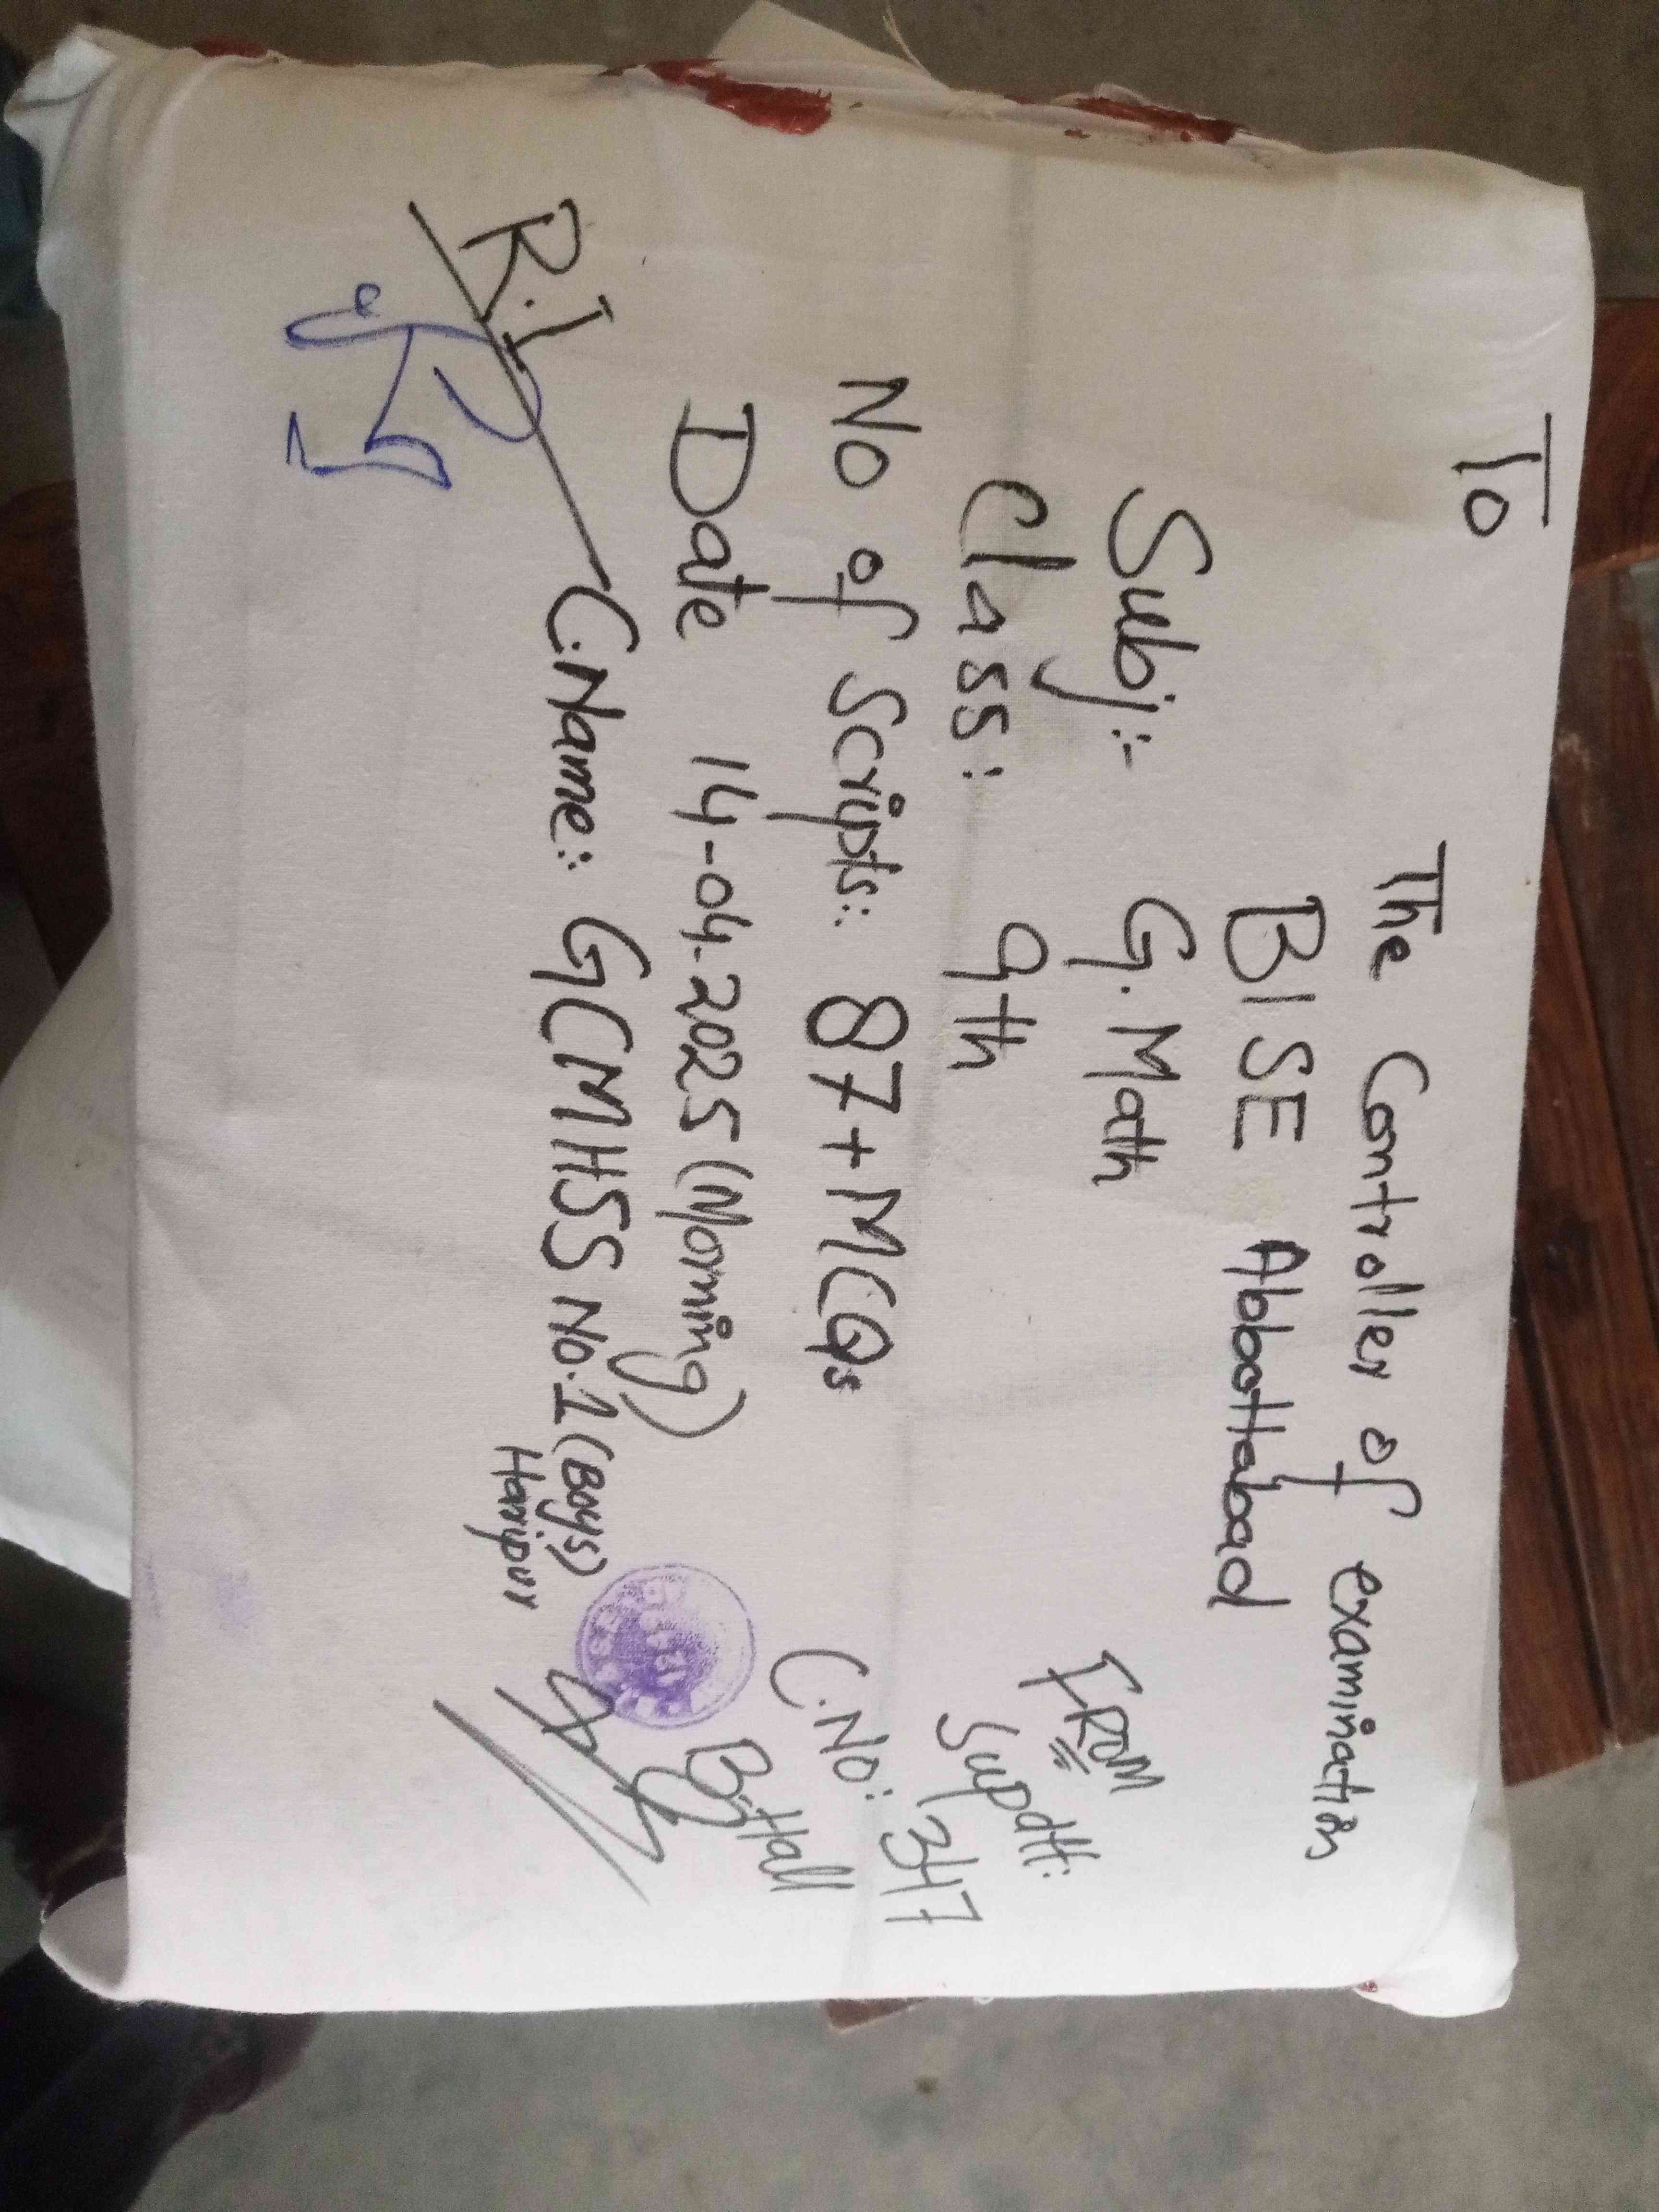 To
The Controller of examination
BISE Abbottabad
Subj:- G.Math
Class: 9th
No of Scripts:: 87+MCQs
Date 14-04-2025 (Morning)
C.Name:: GCMHSS No.1 (Boys)
Haripur
R.I
FROM
Supdtt:
C.No: 347
B-Hall